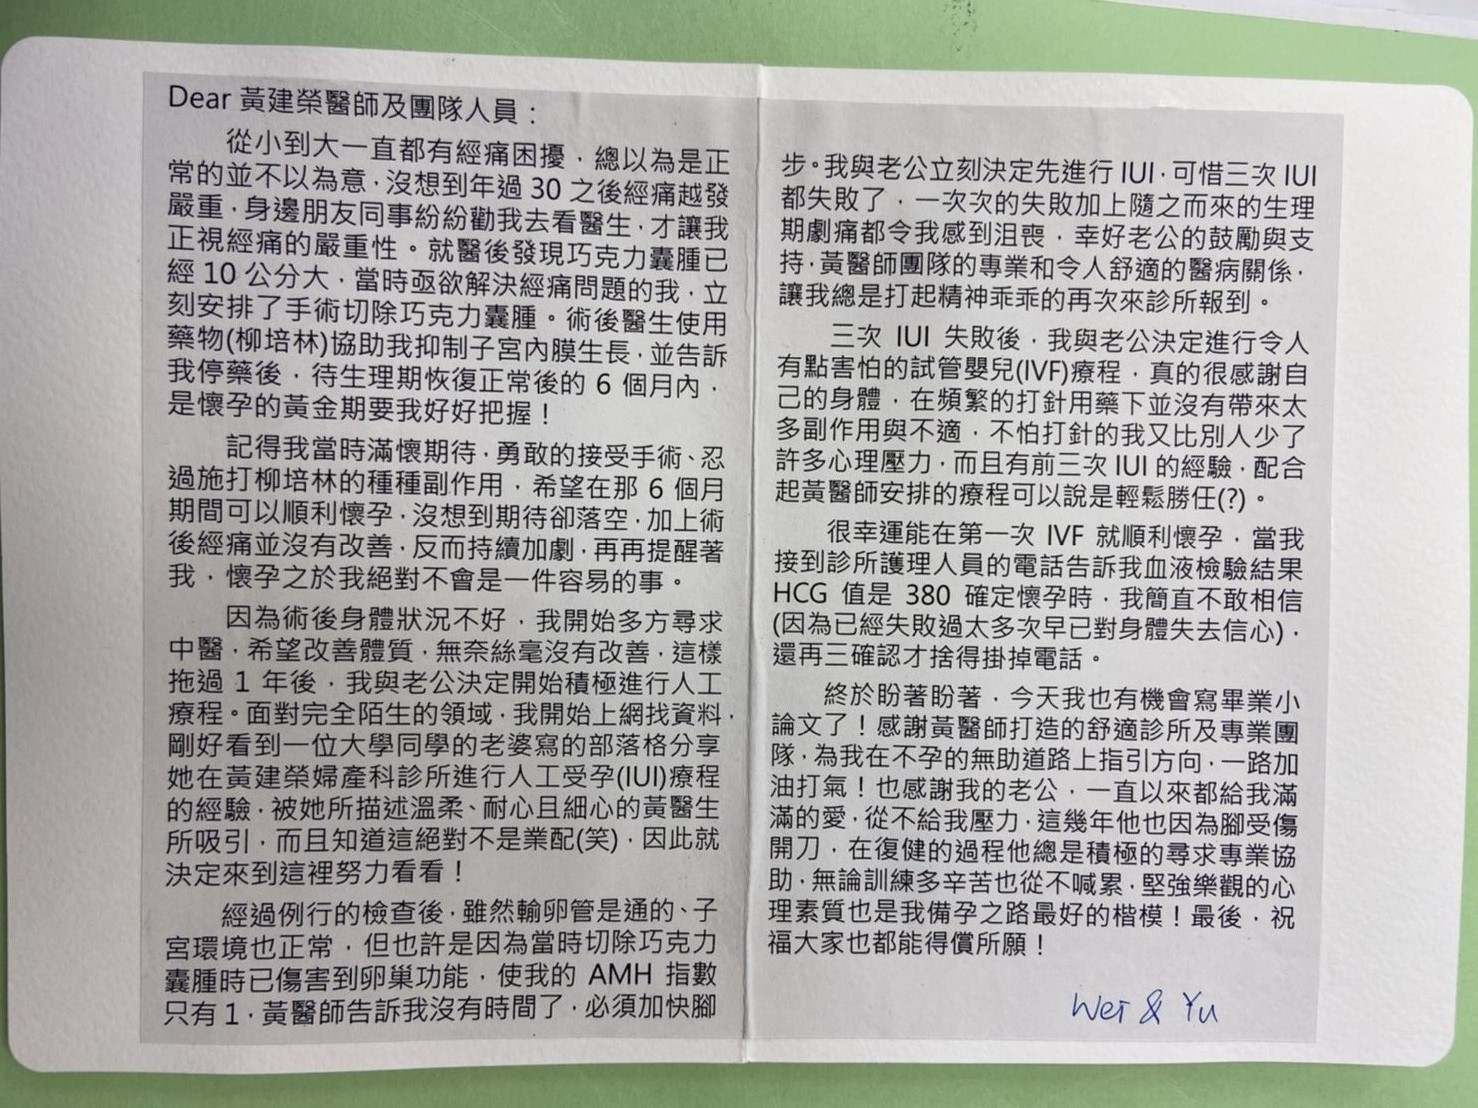 Dear 黃建榮醫師及團隊人員：
從小到大一直都有經痛困擁，總以為是正
常的並不以為意，沒想到年過 30 之後經痛越發
嚴重，身邊朋友同事紛紛勸我去看醫生，才讓我
正視經痛的嚴重性。就醫後發現巧克力囊腫已
經 10 公分大，當時亟欲解決經痛問題的我，立
刻安排了手術切除巧克力囊腫。術後醫生使用
藥物(柳培林)協助我抑制子宮內膜生長，並告訴
我停藥後，待生理期恢復正常後的 6 個月內，
是懷孕的黃金期要我好好把握！
記得我當時滿懷期待，勇敢的接受手術、忍
過施打柳培林的種種副作用，希望在那 6 個月
期間可以順利懷孕，沒想到期待卻落空，加上術
後經痛並沒有改善，反而持續加劇，再再提醒著
我，懷孕之於我絕對不會是一件容易的事。
因為術後身體狀況不好，我開始多方尋求
中醫，希望改善體質，無奈絲毫沒有改善，這樣
拖過 1 年後，我與老公決定開始積極進行人工
療程。面對完全陌生的領域，我開始上網找資料，
剛好看到一位大學同學的老婆寫的部落格分享
她在黃建榮婦產科診所進行人工受孕(IUI)療程
的經驗，被她所描述溫柔、耐心且細心的黃醫生
所吸引，而且知道這絕對不是業配(笑)，因此就
決定來到這裡努力看看！
經過例行的檢查後，雖然輸卵管是通的、子
宮環境也正常，但也許是因為當時切除巧克力
囊腫時已傷害到卵巢功能，使我的 AMH 指數
只有 1，黃醫師告訴我沒有時間了，必須加快腳
步。我與老公立刻決定先進行 IUI，可惜三次 IUI
都失敗了，一次次的失敗加上隨之而來的生理
期劇痛都令我感到沮喪，幸好老公的鼓勵與支
持，黃醫師團隊的專業和令人舒適的醫病關係，
讓我總是打起精神乖乖的再次來診所報到。
三次 IUI 失敗後，我與老公決定進行令人
有點害怕的試管嬰兒(IVF)療程，真的很感謝自
己的身體，在頻繁的打針用藥下並沒有帶來太
多副作用與不適，不怕打針的我又比別人少了
許多心理壓力，而且有前三次 IUI 的經驗，配合
起黃醫師安排的療程可以說是輕鬆勝任(?)。
很幸運能在第一次 IVF 就順利懷孕，當我
接到診所護理人員的電話告訴我血液檢驗結果
HCG 值是 380 確定懷孕時，我簡直不敢相信
(因為已經失敗過太多次早已對身體失去信心)，
還再三確認才捨得掛掉電話。
終於盼著盼著，今天我也有機會寫畢業小
論文了！感謝黃醫師打造的舒適診所及專業團
隊，為我在不孕的無助道路上指引方向，一路加
油打氣！也感謝我的老公，一直以來都給我滿
滿的愛，從不給我壓力，這幾年他也因為腳受傷
開刀，在復健的過程他總是積極的尋求專業協
助，無論訓練多辛苦也從不喊累，堅強樂觀的心
理素質也是我備孕之路最好的楷模！最後，祝
福大家也都能得償所願！
Wei & Yu